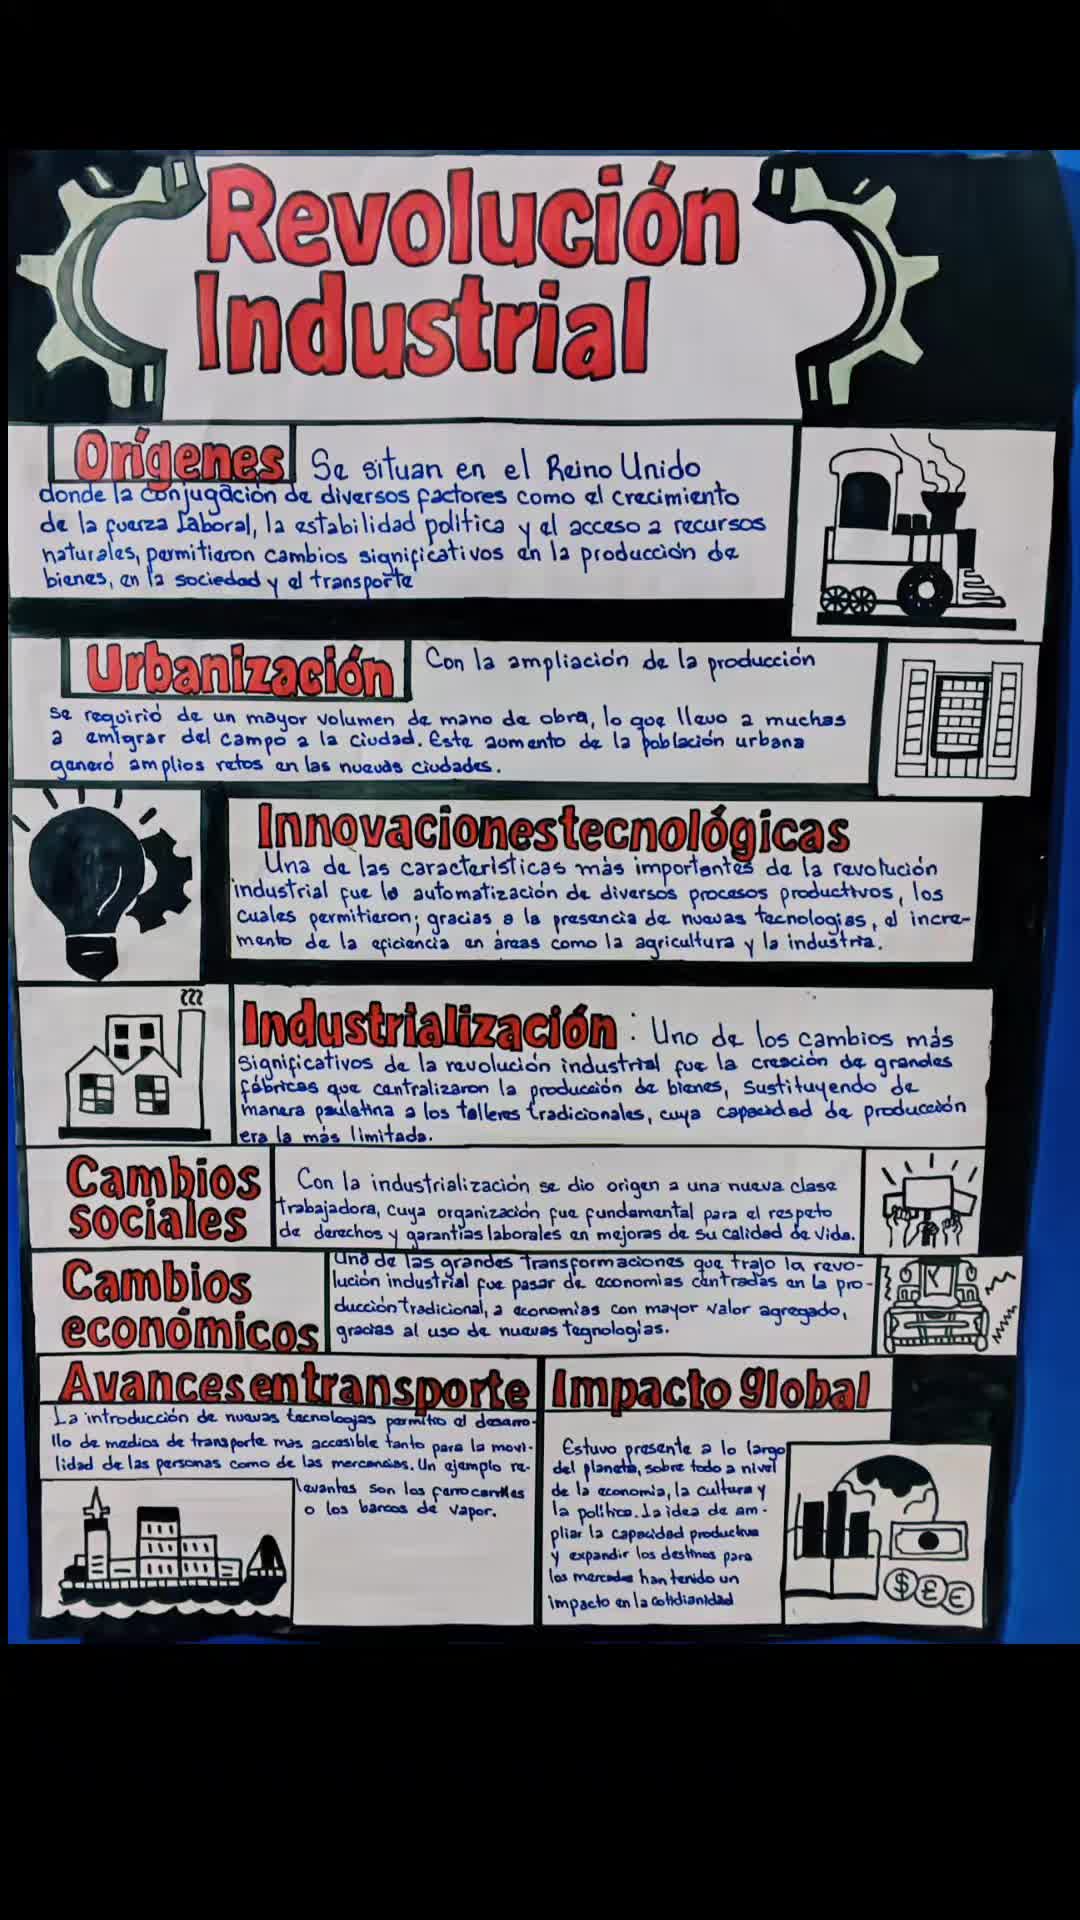 Revolución
Industrial
Orígenes Se situan en el Reino Unido
donde la conjugación de diversos factores como el crecimiento
de la fuerza laboral, la estabilidad política y el acceso a recursos
naturales, permitieron cambios significativos en la producción de
bienes, en la sociedad y el transporte
Urbanización Con la ampliación de la producción
se requirió de un mayor volumen de mano de obra, lo que llevo a muchas
a emigrar del campo a la ciudad. Este aumento de la población urbana
generó amplios retos en las nuevas ciudades.
Innovaciones tecnológicas
Una de las características más importantes de la revolución
industrial fue la automatización de diversos procesos productivos, los
cuales permitieron; gracias a la presencia de nuevas tecnologías, el incre-
mento de la eficiencia en áreas como la agricultura y la industria.
Industrialización : Uno de los cambios más
significativos de la revolución industrial fue la creación de grandes
fábricas que centralizaron la producción de bienes, sustituyendo de
manera paulatina a los talleres tradicionales, cuya capacidad de producción
era la más limitada.
Cambios
sociales
Con la industrialización se dio origen a una nueva clase
trabajadora, cuya organización fue fundamental para el respeto
de derechos y garantías laborales en mejoras de su calidad de vida.
Cambios
económicos
Una de las grandes transformaciones que trajo la revo-
lución industrial fue pasar de economías centradas en la pro-
ducción tradicional, a economías con mayor valor agregado,
gracias al uso de nuevas tegnologías.
Avances en transporte
La introducción de nuevas tecnologías permitio el desarro-
llo de medios de transporte mas accesible tanto para la movi-
lidad de las personas como de las mercancías. Un ejemplo re-
levantes son los ferrocarriles
o los barcos de vapor.
Impacto global
Estuvo presente a lo largo
del planeta, sobre todo a nivel
de la economía, la cultura y
la política. La idea de am-
pliar la capacidad productiva
y expandir los destinos para
los mercados han tenido un
impacto en la cotidianidad
$ £ €